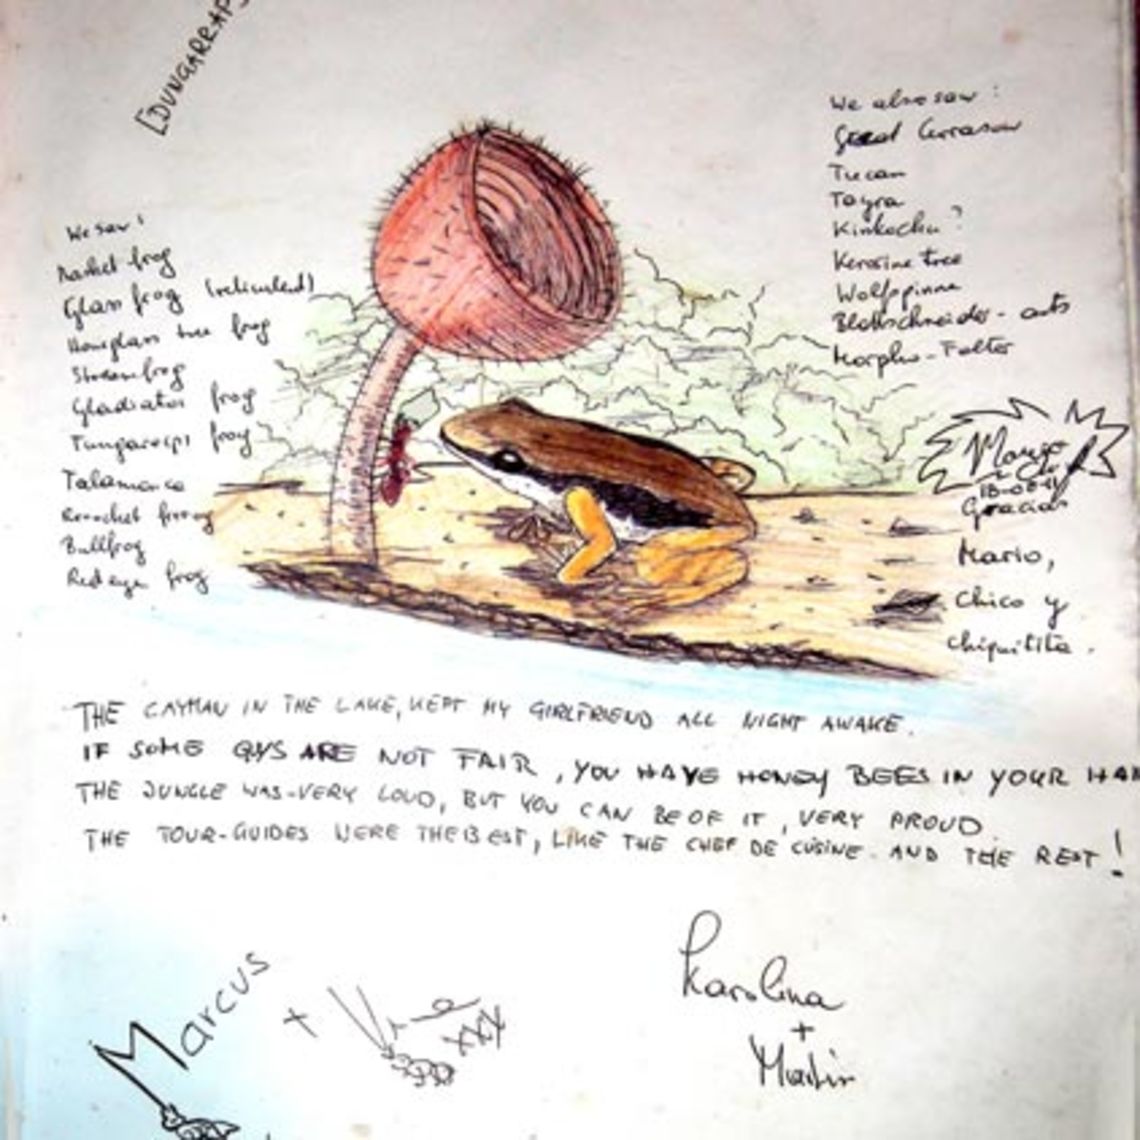 [DUNGARRAPS
We saw!
Rocket frog
Glass frog (reticulated)
Hourglass tree frog
frog
Gladiator frog
Tungarapi frog
Talamanca
Rrocket frrog
Bullfrog
Red eye frog
We also saw:
Great Currasow
Tucan
Tayra
Kinkachu?
Kerosine tree
Wolfspinne
Blattschneider-ants
Morpho-Falter
Mario
18-08-11
Gracias
Mario,
Chico y
Chiquitita.
THE CAYMAN IN THE LAKE, KEPT MY GIRLFRIEND ALL NIGHT AWAKE.
IF SOME GUYS ARE NOT FAIR, YOU HAVE HONEY BEES IN YOUR HAI
THE JUNGLE WAS VERY LOUD, BUT YOU CAN BE OF IT, VERY PROUD.
THE TOUR-GUIDES WERE THE BEST, LIKE THE CHEF DE CUSINE AND THE REST!
Marcus
+
XXX
Karolina
+
Martin